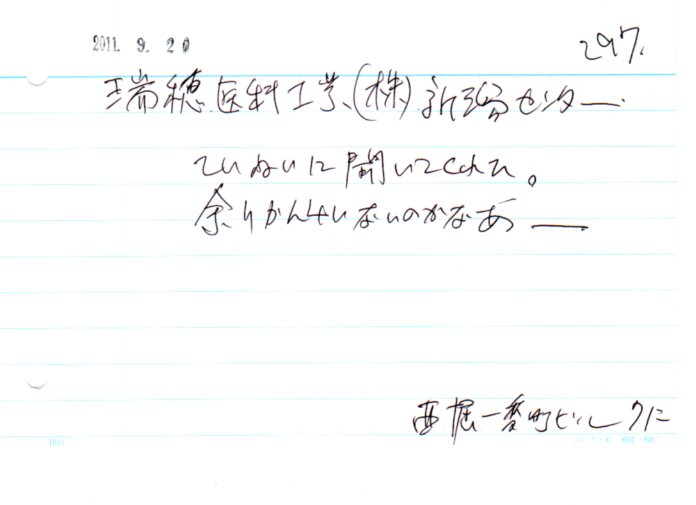 2011. 9. 20
297.
瑞穂医科工業、(株) 新潟センター.
ていねいに聞いてくれた。
余りかんけいないのかなあー
西堀一番町ビル